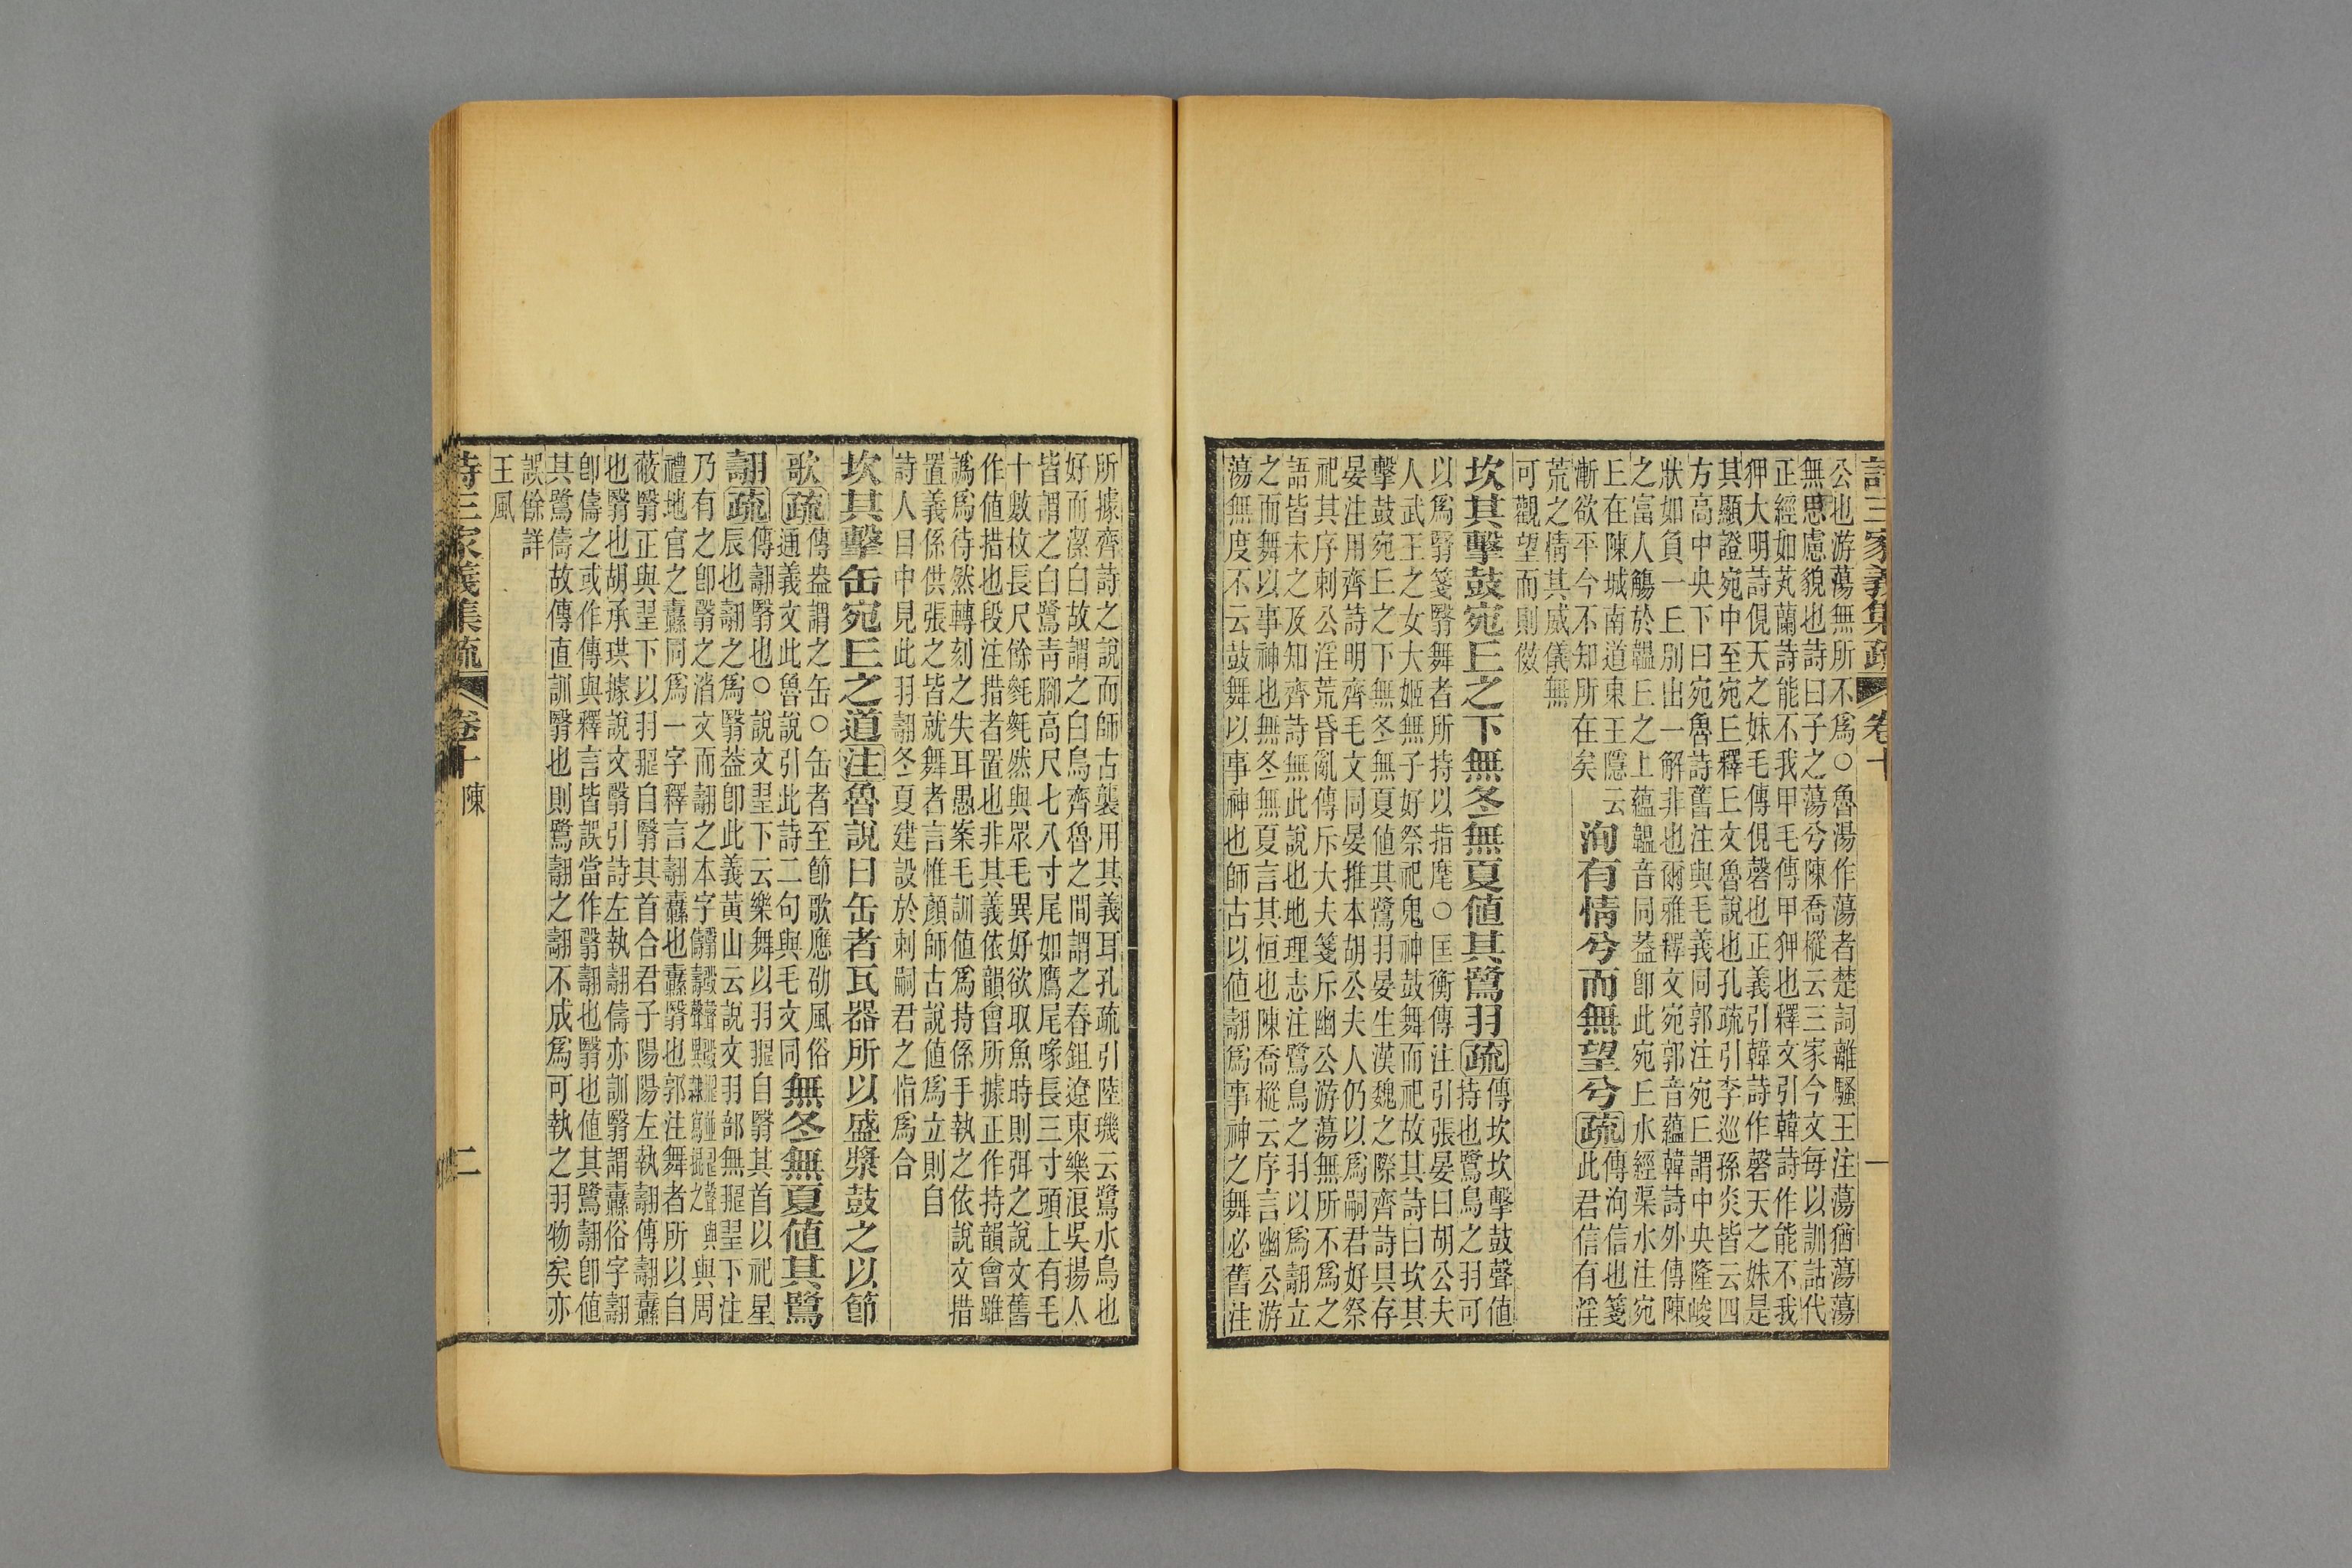 詩三家義集疏 卷十 一
公也游蕩無所不爲○魯湯作蕩者楚詞離騷王注蕩猶蕩蕩
無思慮貌也詩曰子之蕩兮陳喬樅云三家今文每以訓詁代
正經如芄蘭詩能不我甲毛傳甲狎也釋文引韓詩作能不我
狎大明詩俔天之妹毛傳俔磬也正義引韓詩作磬天之妹是
其顯證宛中至宛丘釋丘文魯說也孔疏引李巡孫炎皆云四
方高中央下曰宛魯詩舊注與毛義同郭注宛丘謂中央隆峻
狀如負一丘別出一解非也爾雅釋文宛郭音蘊韓詩外傳陳
之富人觴於韞丘之上蘊韞音同葢卽此宛丘水經渠水注宛
丘在陳城南道東王隱云
漸欲平今不知所在矣
洵有情兮而無望兮疏
傳洵信也箋
此君信有淫
荒之情其威儀無
可觀望而則傚
坎其擊鼓宛丘之下無冬無夏值其鷺羽疏
傳坎坎擊鼓聲値
持也鷺鳥之羽可
以爲翳箋翳舞者所持以指麾○匡衡傳注引張晏曰胡公夫
人武王之女大姬無子好祭祀鬼神鼓舞而祀故其詩曰坎其
擊鼓宛丘之下無冬無夏値其鷺羽晏生漢魏之際齊詩具存
晏注用齊詩明齊毛文同晏推本胡公夫人仍以爲嗣君好祭
祀其序刺公淫荒昏亂傳斥大夫箋斥幽公游蕩無所不爲之
語皆未之及知齊詩無此說也地理志注鷺鳥之羽以爲翿立
之而舞以事神也無冬無夏言其恒也陳喬樅云序言幽公游
蕩無度不云鼓舞以事神也師古以値翿爲事神之舞必舊注
所據齊詩之說而師古襲用其義耳孔疏引陸璣云鷺水鳥也
好而潔白故謂之白鳥齊魯之閒謂之舂鉏遼東樂浪吳揚人
皆謂之白鷺青腳高尺七八寸尾如鷹尾喙長三寸頭上有毛
十數枚長尺餘毿毿然與眾毛異好欲取魚時則弭之說文舊
作値措也段注措者置也非其義依韻會所據正作持韻會雖
譌爲待然轉刻之失耳愚案毛訓値爲持係手執之依說文措
置義係供張之皆就舞者言惟顏師古說値爲立則自
詩人目中見此羽翿冬夏建設於刺嗣君之恉爲合
坎其擊缶宛丘之道注魯說曰缶者瓦器所以盛漿鼓之以節
歌疏
傳盎謂之缶○缶者至節歌應劭風俗
通義文此魯說引此詩二句與毛文同
無冬無夏値其鷺
翿疏
傳翿翳也○說文翌下云樂舞以羽𦒿自翳其首以祀星
辰也翿之爲翳葢卽此義黃山云說文羽部無𦒿翌下注
乃有之卽翳之消文而翿之本字 與周
禮地官之纛同爲一字釋言翿纛也纛翳也郭注舞者所以自
蔽翳正與翌下以羽𦒿自翳其首合君子陽陽左執翿傳翿纛
也翳也胡承珙據說文翳引詩左執翿儔亦訓翳謂纛俗字翿
卽儔之或作傳與釋言皆誤當作翳翿也翳也値其鷺翿卽値
其鷺儔故傳直訓翳也則鷺翿之翿不成爲可執之羽物矣亦
誤餘詳
王風
詩三家義集疏 卷十 陳 二